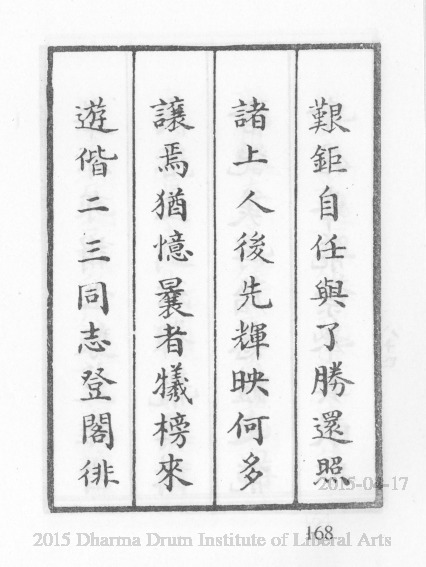 艱鉅自任與了勝還照
諸上人後先輝映何多
讓焉猶憶曩者犠榜來
遊偕二三同志登閣徘
2015-04-17
168
2015 Dharma Drum Institute of Liberal Arts